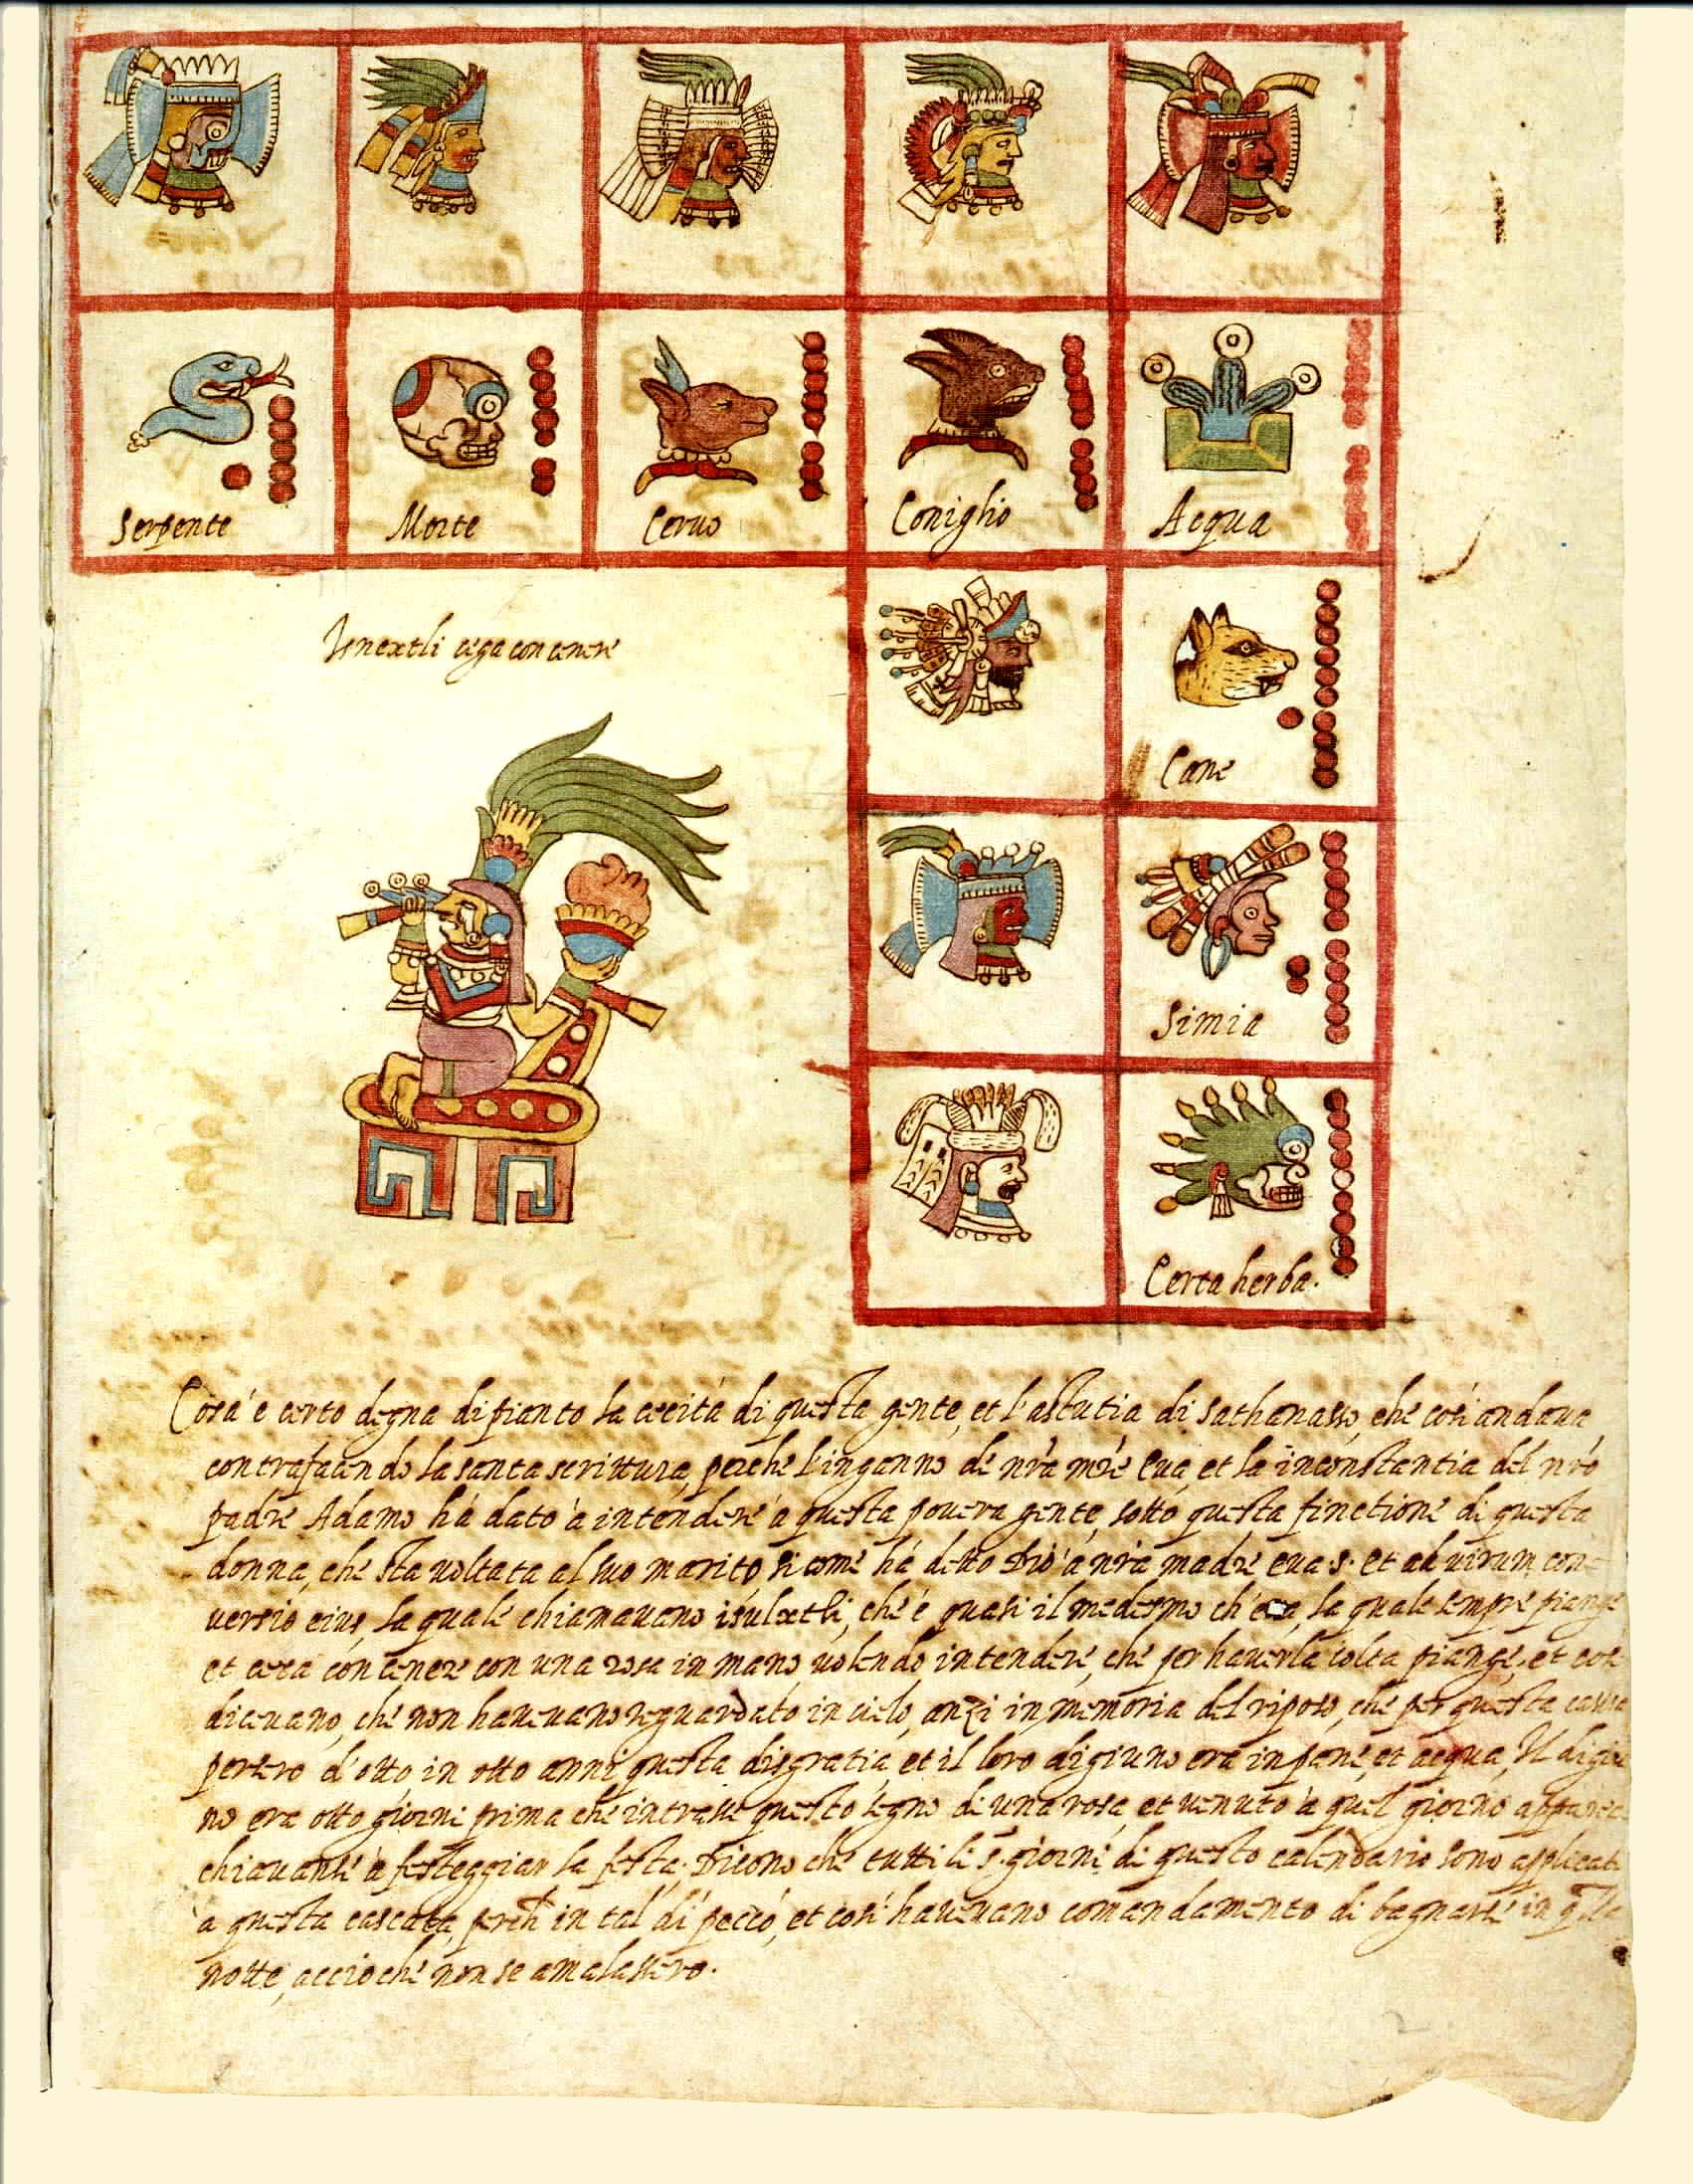 Serpente
Morte
Ceruo
Coniglio
Acqua
Isnextli cega con cenere
Cane
Simia
Certa herba.
Cosa é certo degna di pianto la cecità di questa gente, et l'astutia di sathanasso, che così andaua
contrafacendo la santa scrittura, perche l'inganno de nrã mrẽ Eua, et la inconstantia del nrõ
padre Adamo há dato à intendere à questa pouera gente, sotto questa finctione di questa
donna, che sta uoltata al suo marito, si come há detto Dio à nrã madre eua .s. et ad uirum con-
uersio eius, la quale chiamauano isulextli, che é quasi il medesmo ch'eua, la quale sempre piange
et cecá con cenere con una rosa in mano, uolendo intendere, che per hauerla colta piange, et così
diceuano, che non haueuano reguardato in cielo, anzi in memoria del riposo, che per questa causa
persero d'otto, in otto anni questa disgratia, et il loro digiuno era in pane, et acqua, Il digiu
no era otto giorni prima che intrasse questo segno di una rosa, et uenuto à quel giorno apparec
chiauansi à festeggiar la festa. Dicono che tutti li 5. giorni di questo calendario sono applicati
à questa cascata, perch̃ in tal dí peccó, et così haueuano comandamento di bagnarsi in q̃lla
notte, accioche non se amalassero.